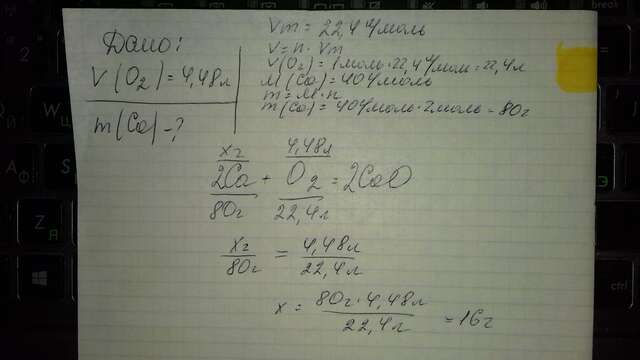 Дано:
V(O₂)=4,48л
m(Ca)-?
Vm = 22,4 л/моль
V=n·Vm
V(O₂)=1моль·22,4 л/моль=22,4л
M(Ca)=40г/моль
m=M·n
m(Ca)=40г/моль·2моль=80г
xг 4,48л
2Ca + O₂ = 2CaO
80г 22,4л
xг/80г = 4,48л/22,4л
x = 80г·4,48л/22,4л = 16г